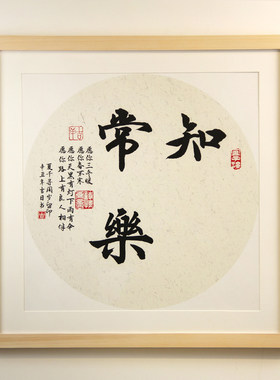 知
常樂
愿你三冬暖
愿你春不寒
愿你天黑有灯下雨有伞
愿你路上有良人相伴
辛丑年吉日书